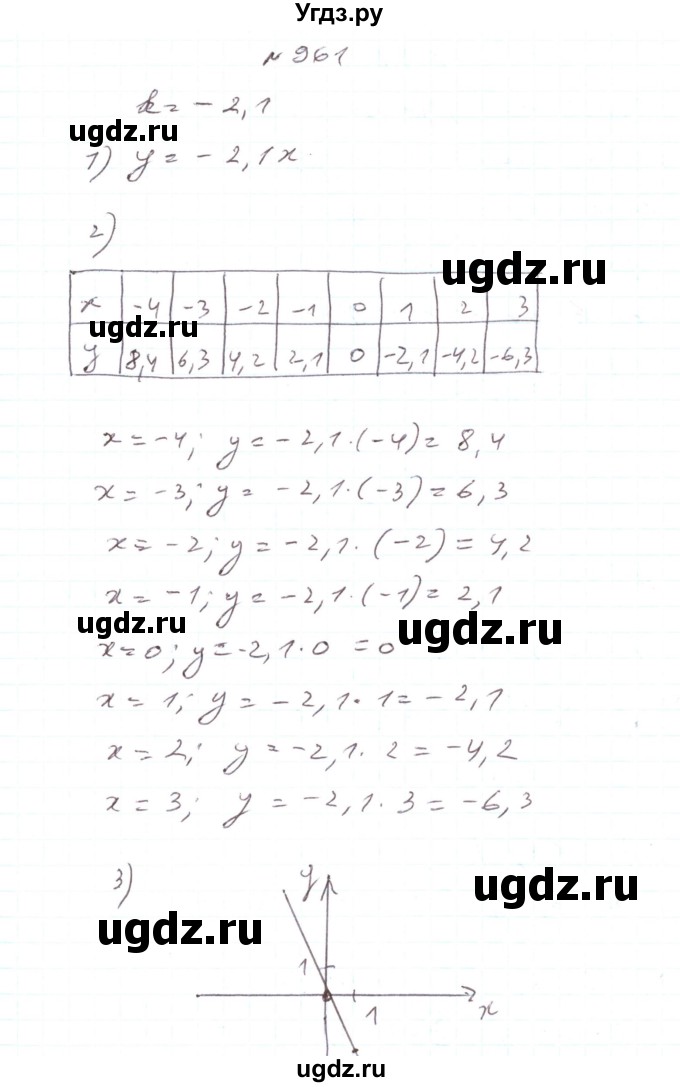 Угдз.ру
№961
k = -2,1
ugdz.ru
1) y = -2,1x.
2)
ugdz.ru
x -4 -3 -2 -1 0 1 2 3
ugdz.ru
y 8,4 6,3 4,2 2,1 0 -2,1 -4,2 -6,3
x = -4; y = -2,1·(-4) = 8,4
x = -3; y = -2,1·(-3) = 6,3
x = -2; y = -2,1·(-2) = 4,2
x = -1; y = -2,1·(-1) = 2,1
ugdz.ru
ugdz.ru
x = 0; y = -2,1·0 = 0
x = 1; y = -2,1·1 = -2,1
x = 2; y = -2,1·2 = -4,2
x = 3; y = -2,1·3 = -6,3
3)
y
ugdz.ru
ugdz.ru
1
1
x
ugdz.ru